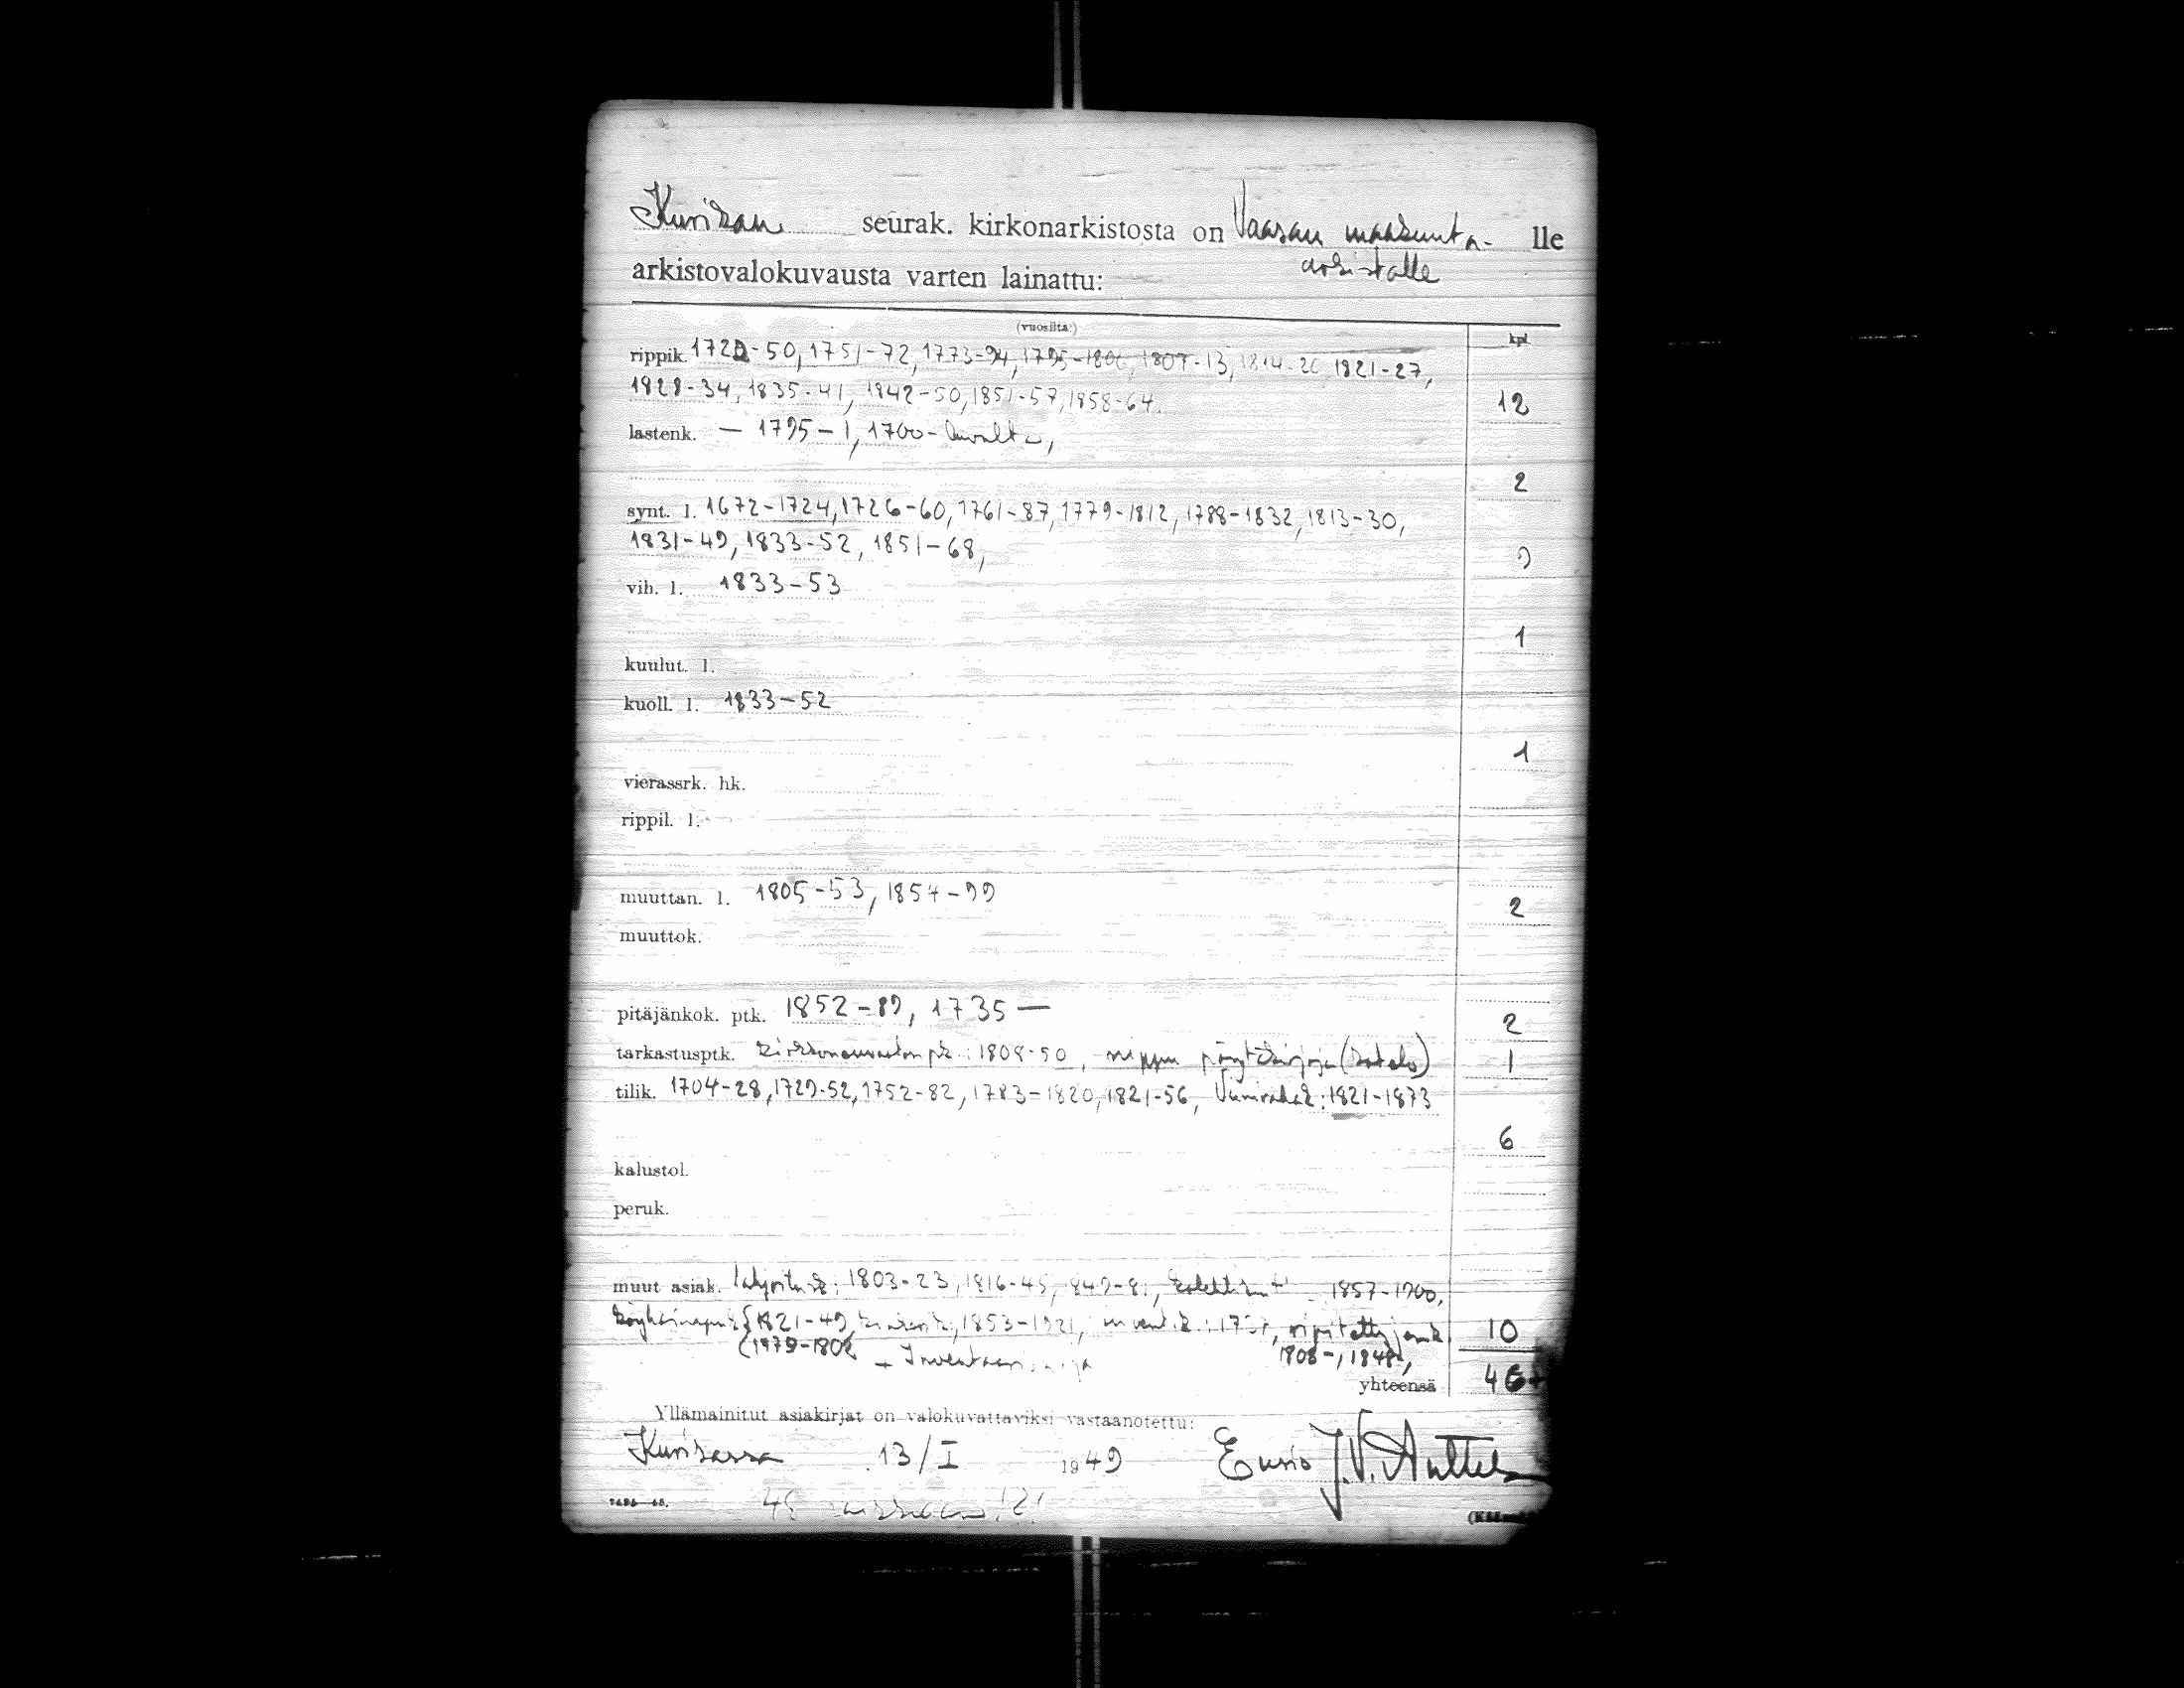 Kurikan seurak. kirkonarkistosta on Vaasan maakunta- lle
arkistolle
arkistovalokuvausta varten lainattu:
(vuosilta:) kpl.
rippik. 1722-50, 1751-72, 1773-94, 1795-1806, 1807-13, 1814-20, 1821-27,
1828-34, 1835-41, 1842-50, 1851-57, 1858-64. 12
lastenk. — 1795-1, 1700-luvulta,
2
synt. l. 1672-1724, 1726-60, 1761-87, 1779-1812, 1788-1832, 1813-30,
1831-49, 1833-52, 1851-68, 9
vih. l. 1833-53
1
kuulut. l.
kuoll. l. 1833-52
1
vierassrk. hk.
rippil. l.
muuttan. l. 1805-53, 1854-99 2
muuttok.
pitäjänkok. ptk. 1852-89, 1735 — 2
tarkastusptk. 1808-50, nippu pöytäkirjoja 1
tilik. 1704-28, 1729-52, 1752-82, 1783-1820, 1821-56, Viinirahak: 1821-1873
6
kalustol.
peruk.
muut asiak. lahjoitusk: 1803-23, 1816-45, 1857-1900,
1821-49, 1853-1921, ripitettyjen 10
1808-, 1848,
yhteensä 46
Yllämainitut asiakirjat on valokuvattaviksi vastaanotettu:
Kurikassa 13/I 1949 Eusio J.V. Anttila